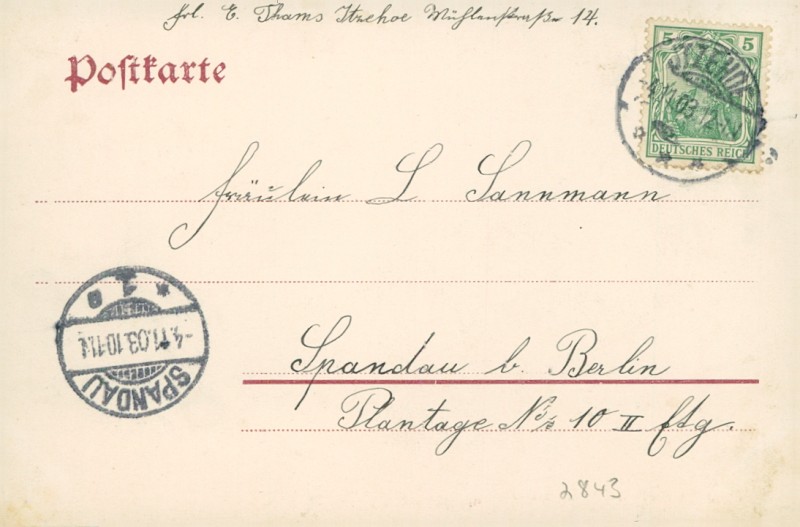 Frl. E. Thams Itzehoe Mühlenstraße 14.
Postkarte
5 5
DEUTSCHES REICH
ITZEHOE
-4.11.03
Fräulein L Sannmann
1 a
-4.11.03.10-11V.
SPANDAU
Spandau b. Berlin
Plantage No 10 II Etg.
2843